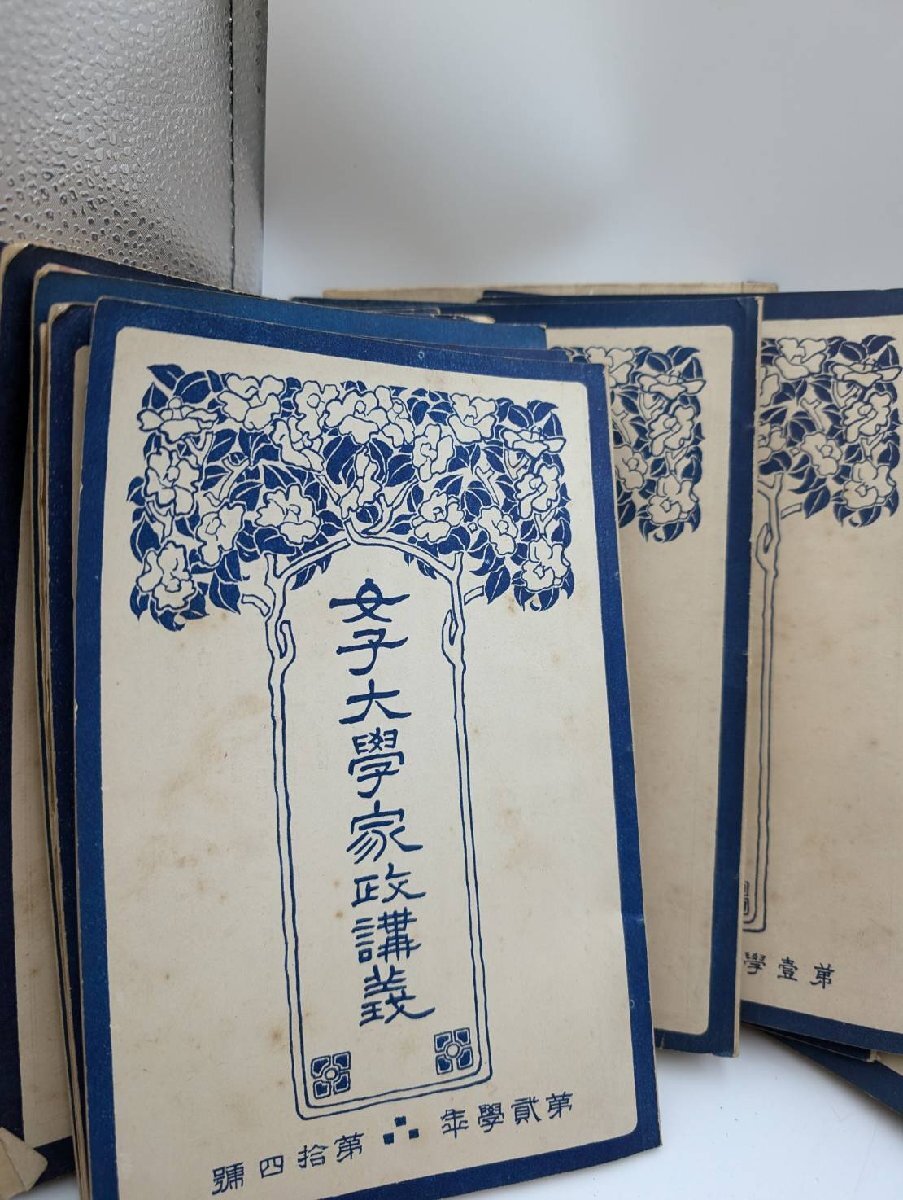 女子大學家政講義
第貳學年 第拾四號
第壹學